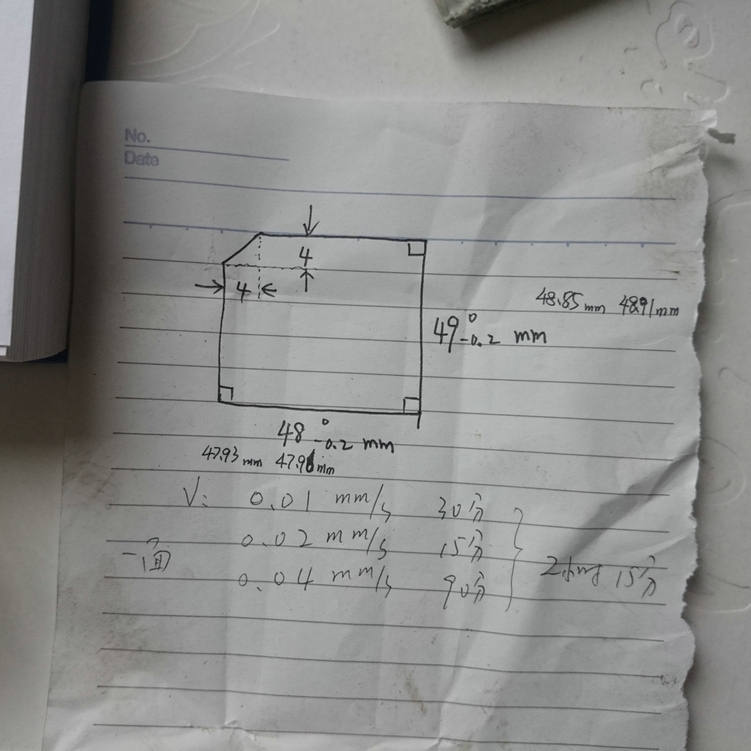 No.
Date
4
4
48.85 mm 48.91mm
49 0 -0.2 mm
48 0 -0.2 mm
47.93 mm 47.96mm
V: 0.01 mm/s 30分
0.02 mm/s 15分
一面
0.04 mm/s 90分
2小时15分